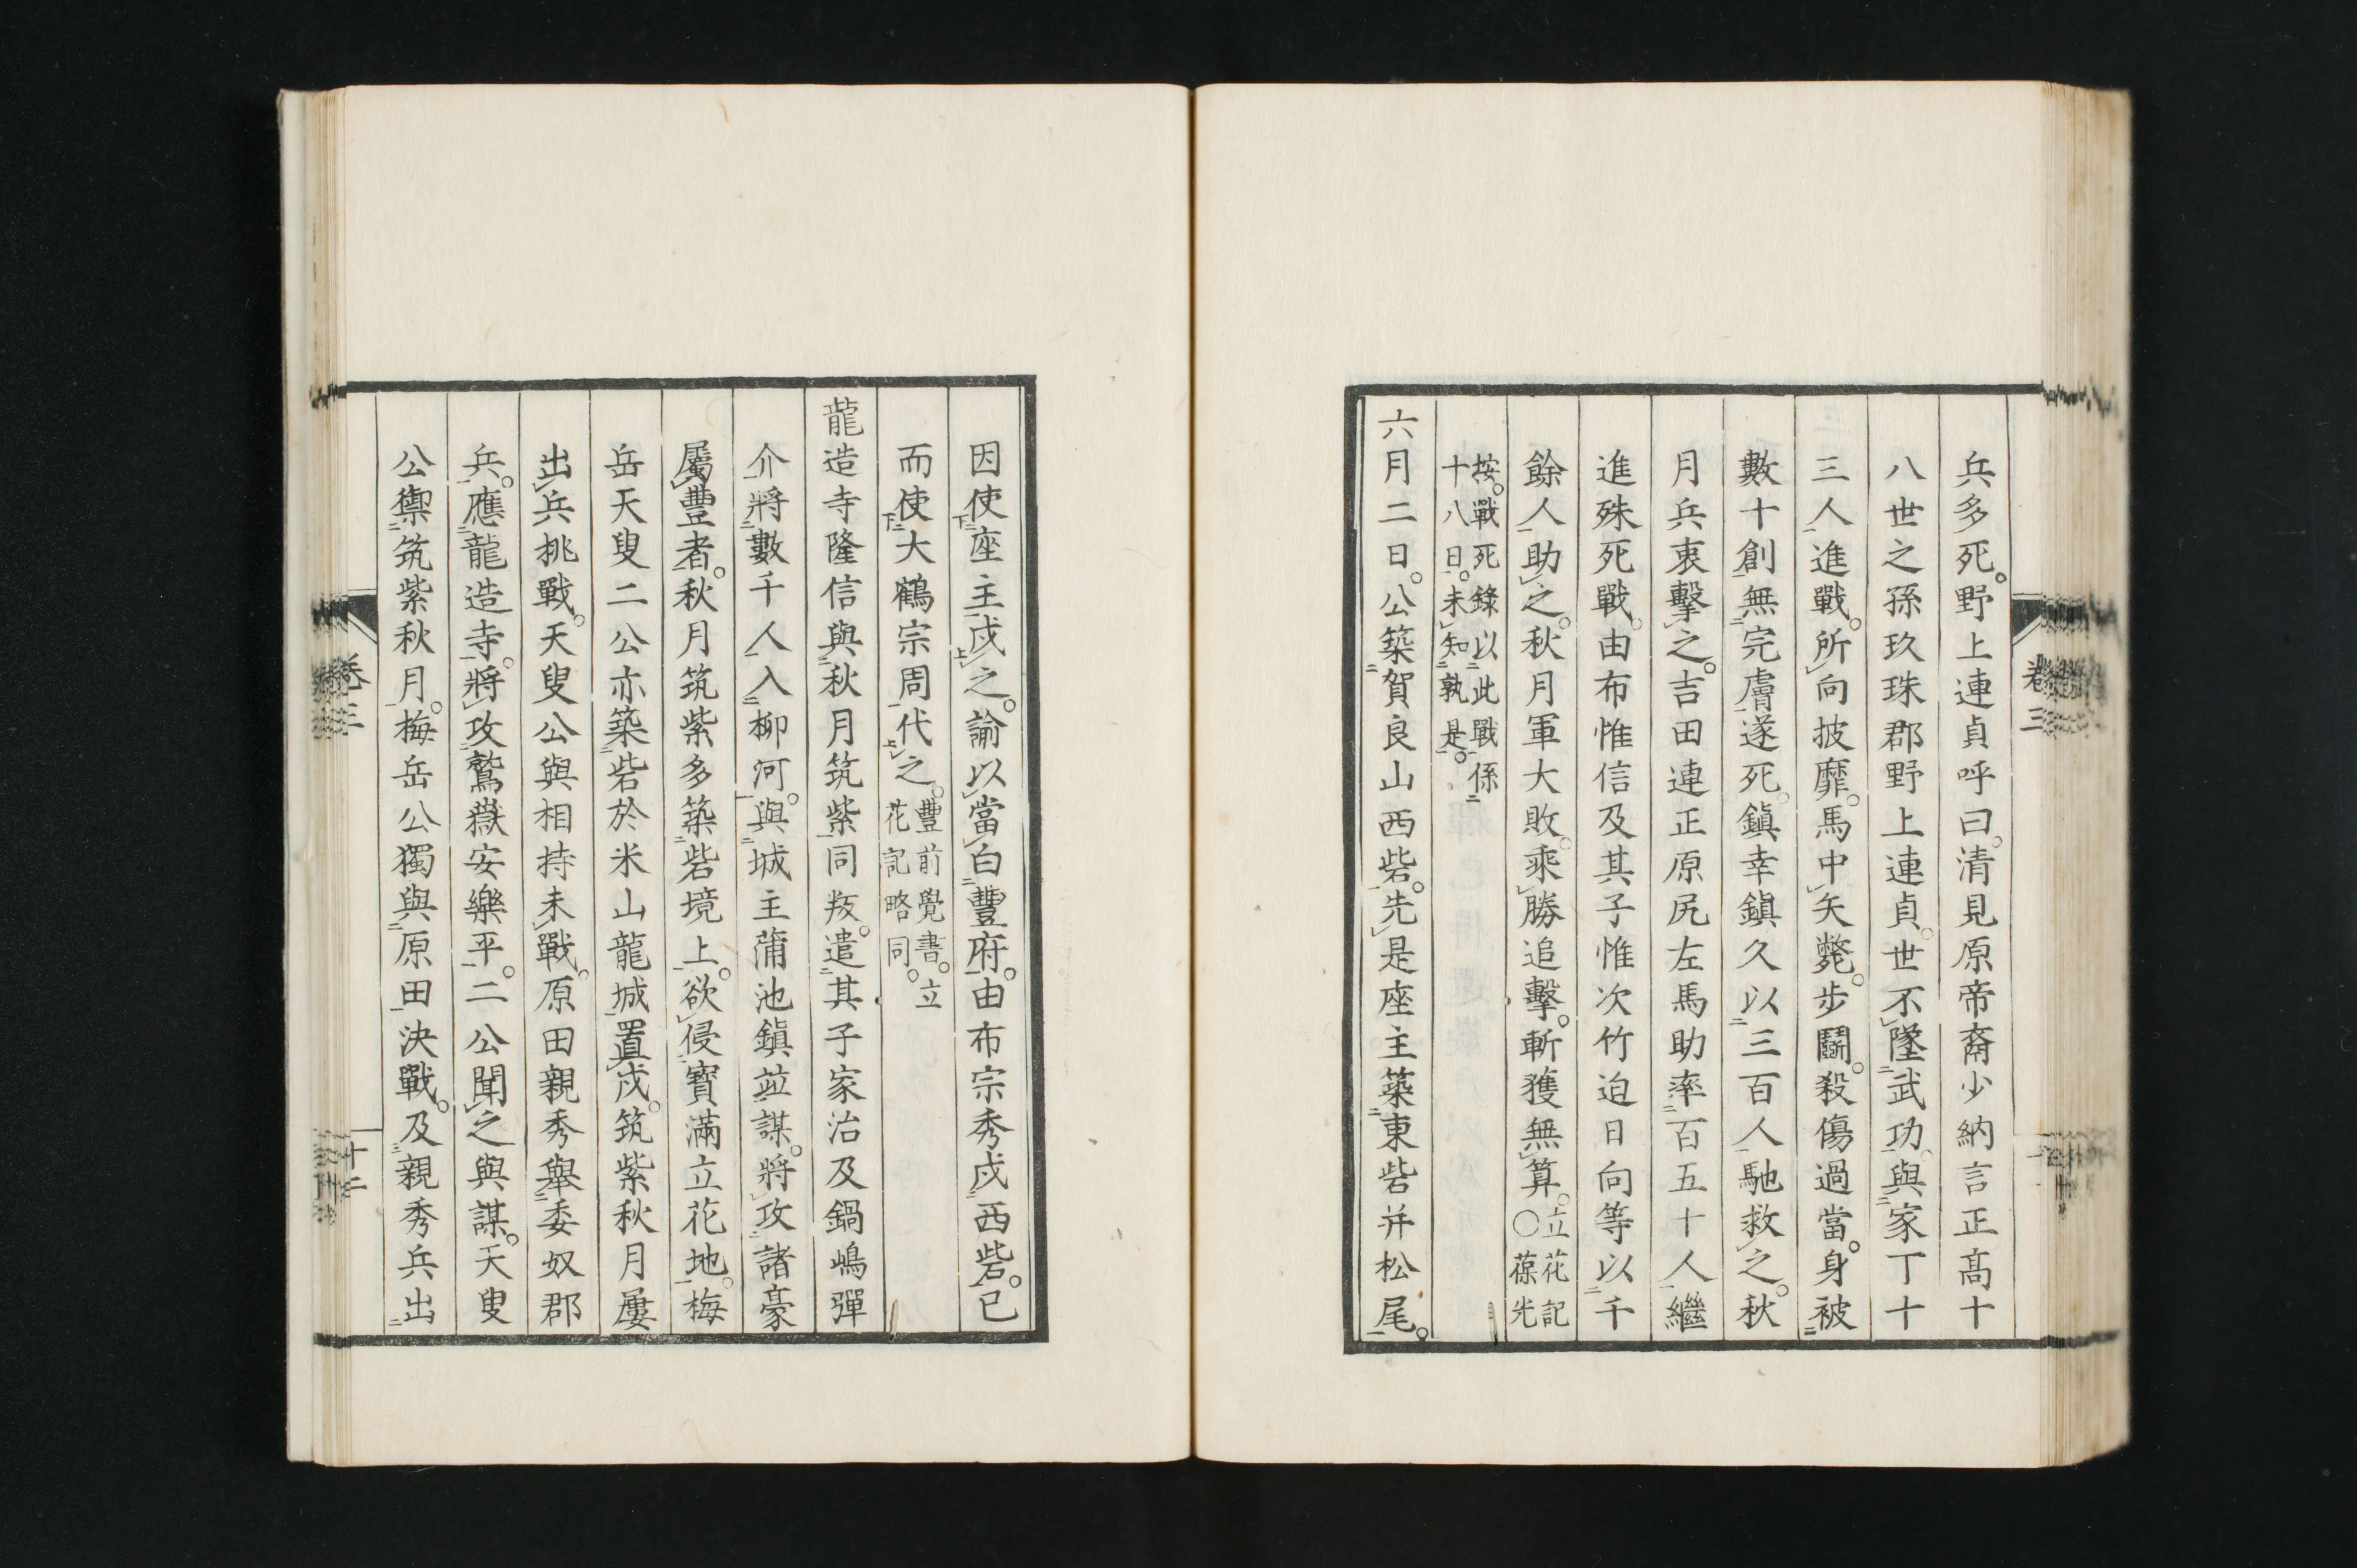 兵多死。野上連貞呼曰。清見原帝裔少納言正高十
八世之孫玖珠郡野上連貞。世不墜武功。與家丁十
三人進戰。所向披靡。馬中矢斃。步鬪。殺傷過當。身被
數十創無完膚遂死。鎭幸鎭久以三百人馳救之。秋
月兵夾擊之。吉田連正原尻左馬助率百五十人繼
進殊死戰。由布惟信及其子惟次竹迫日向等以千
餘人助之。秋月軍大敗。乘勝追擊。斬獲無算。立花記〇葆光
按。戰死錄以此戰係
十八日。未知孰是。
六月二日。公築賀良山西砦。先是座主築東砦并松尾。
卷三
因使座主戍之。諭以當白豐府。由布宗秀戍西砦。已
而使大鶴宗周代之。豐前覺書。立
花記略同。
龍造寺隆信與秋月筑紫同叛。遣其子家治及鍋嶋彈
介將數千人入柳河。與城主蒲池鎭竝謀。將攻諸豪
屬豐者。秋月筑紫多築砦境上。欲侵寶滿立花地。梅
岳天叟二公亦築砦於米山龍城置戍。筑紫秋月屢
出兵挑戰。天叟公與相持未戰。原田親秀擧委奴郡
兵。應龍造寺。將攻鷲嶽安樂平。二公聞之與謀。天叟
公禦筑紫秋月。梅岳公獨與原田決戰。及親秀兵出
卷三
十二